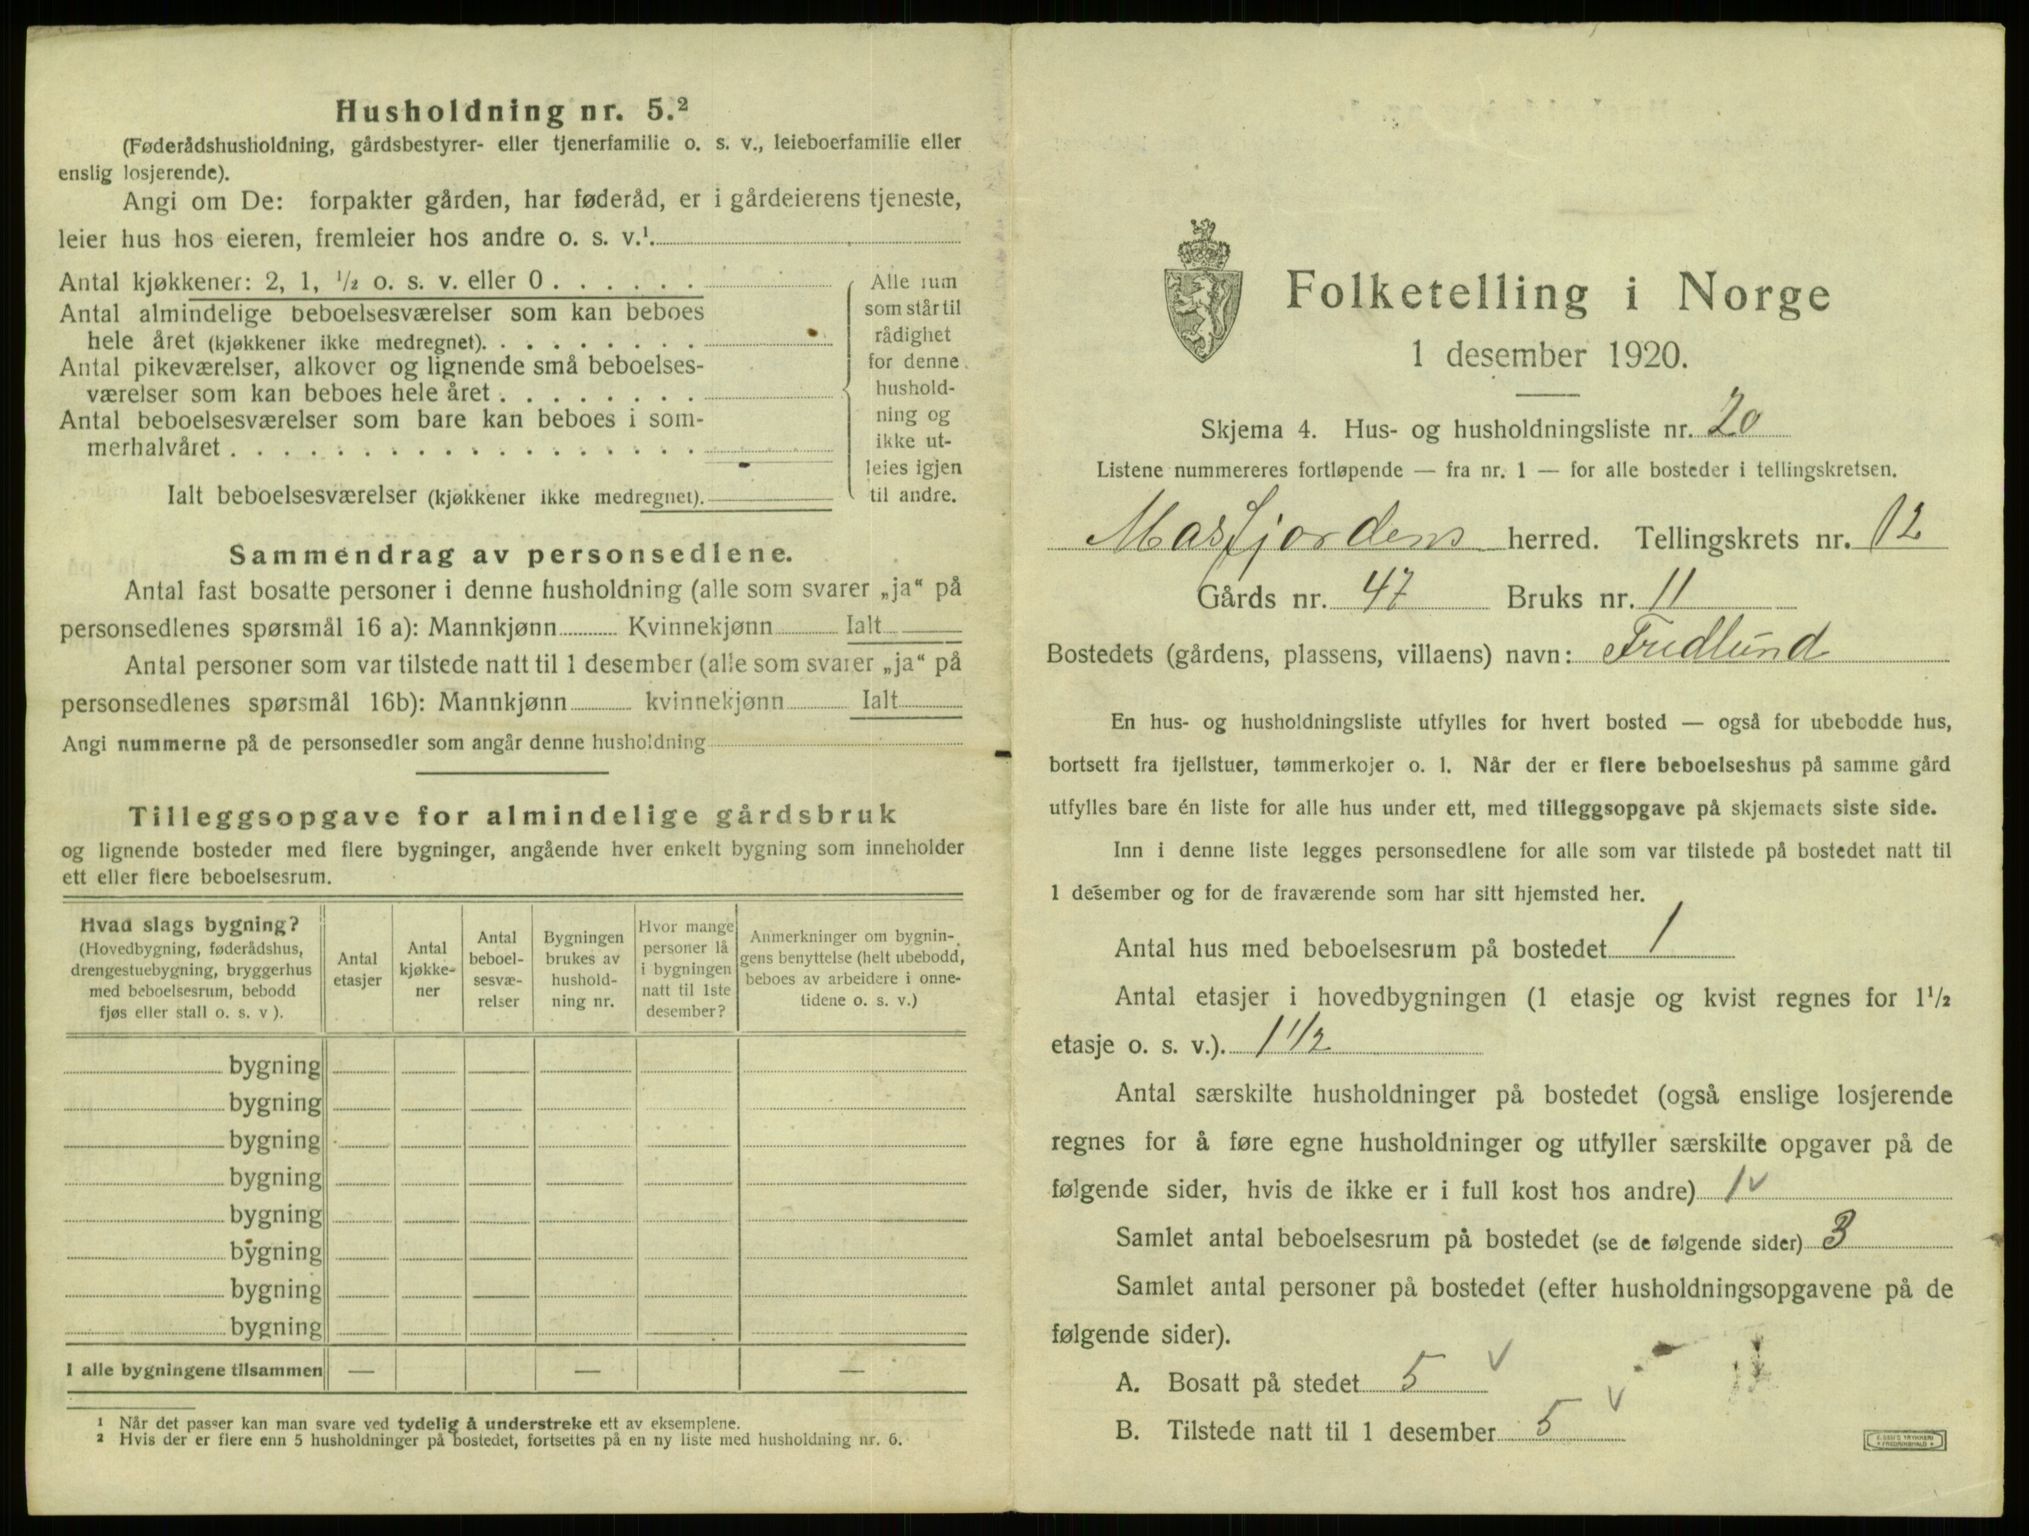 Husholdning nr. 5.²
(Føderådshusholdning, gårdsbestyrer- eller tjenerfamilie o. s. v., leieboerfamilie eller
enslig losjerende).
Angi om De: forpakter gården, har føderåd, er i gårdeierens tjeneste,
leier hus hos eieren, fremleier hos andre o. s. v.¹
Antal kjøkkener: 2, 1, ½ o. s. v. eller 0 . . . . . .
Antal almindelige beboelsesværelser som kan beboes
hele året (kjøkkener ikke medregnet). . . . . . . .
Antal pikeværelser, alkover og lignende små beboelses-
værelser som kan beboes hele året . . . . . . . .
Antal beboelsesværelser som bare kan beboes i som-
merhalvåret . . . . . . . . . . . . . . . . . .
Ialt beboelsesværelser (kjøkkener ikke medregnet).
Alle rum
som står til
rådighet
for denne
hushold-
ning og
ikke ut-
leies igjen
til andre.
Sammendrag av personsedlene.
Antal fast bosatte personer i denne husholdning (alle som svarer „ja“ på
personsedlenes spørsmål 16 a): Mannkjønn Kvinnekjønn Ialt
Antal personer som var tilstede natt til 1 desember (alle som svarer „ja“ på
personsedlenes spørsmål 16b): Mannkjønn kvinnekjønn Ialt
Angi nummerne på de personsedler som angår denne husholdning
Tilleggsopgave for almindelige gårdsbruk
og lignende bosteder med flere bygninger, angående hver enkelt bygning som inneholder
ett eller flere beboelsesrum.
Hvad slags bygning?
(Hovedbygning, føderådshus,
drengestuebygning, bryggerhus
med beboelsesrum, bebodd
fjøs eller stall o. s. v ).
Antal
etasjer
Antal
kjøkke-
ner
Antal
beboel-
sesvæ-
relser
Bygningen
brukes av
hushold-
ning nr.
Hvor mange
personer lå
i bygningen
natt til 1ste
desember?
Anmerkninger om bygnin-
gens benyttelse (helt ubebodd,
beboes av arbeidere i onne-
tidene o. s. v.)
bygning
bygning
bygning
bygning
bygning
bygning
bygning
bygning
I alle bygningene tilsammen — — —
¹ Når det passer kan man svare ved tydelig å understreke ett av eksemplene.
² Hvis der er flere enn 5 husholdninger på bostedet, fortsettes på en ny liste med husholdning nr. 6.
Folketelling i Norge
1 desember 1920.
Skjema 4. Hus- og husholdningsliste nr. 20
Listene nummereres fortløpende — fra nr. 1 — for alle bosteder i tellingskretsen.
Masfjordens herred. Tellingskrets nr. 12
Gårds nr. 47 Bruks nr. 11
Bostedets (gårdens, plassens, villaens) navn: Fredlund
En hus- og husholdningsliste utfylles for hvert bosted — også for ubebodde hus,
bortsett fra fjellstuer, tømmerkojer o. l. Når der er flere beboelseshus på samme gård
utfylles bare én liste for alle hus under ett, med tilleggsopgave på skjemaets siste side.
Inn i denne liste legges personsedlene for alle som var tilstede på bostedet natt til
1 desember og for de fraværende som har sitt hjemsted her.
Antal hus med beboelsesrum på bostedet 1
Antal etasjer i hovedbygningen (1 etasje og kvist regnes for 1½
etasje o. s. v.). 1 1/2
Antal særskilte husholdninger på bostedet (også enslige losjerende
regnes for å føre egne husholdninger og utfyller særskilte opgaver på de
følgende sider, hvis de ikke er i full kost hos andre) 1 v
Samlet antal beboelsesrum på bostedet (se de følgende sider) 3
Samlet antal personer på bostedet (efter husholdningsopgavene på de
følgende sider).
A. Bosatt på stedet 5 v
B. Tilstede natt til 1 desember 5 v